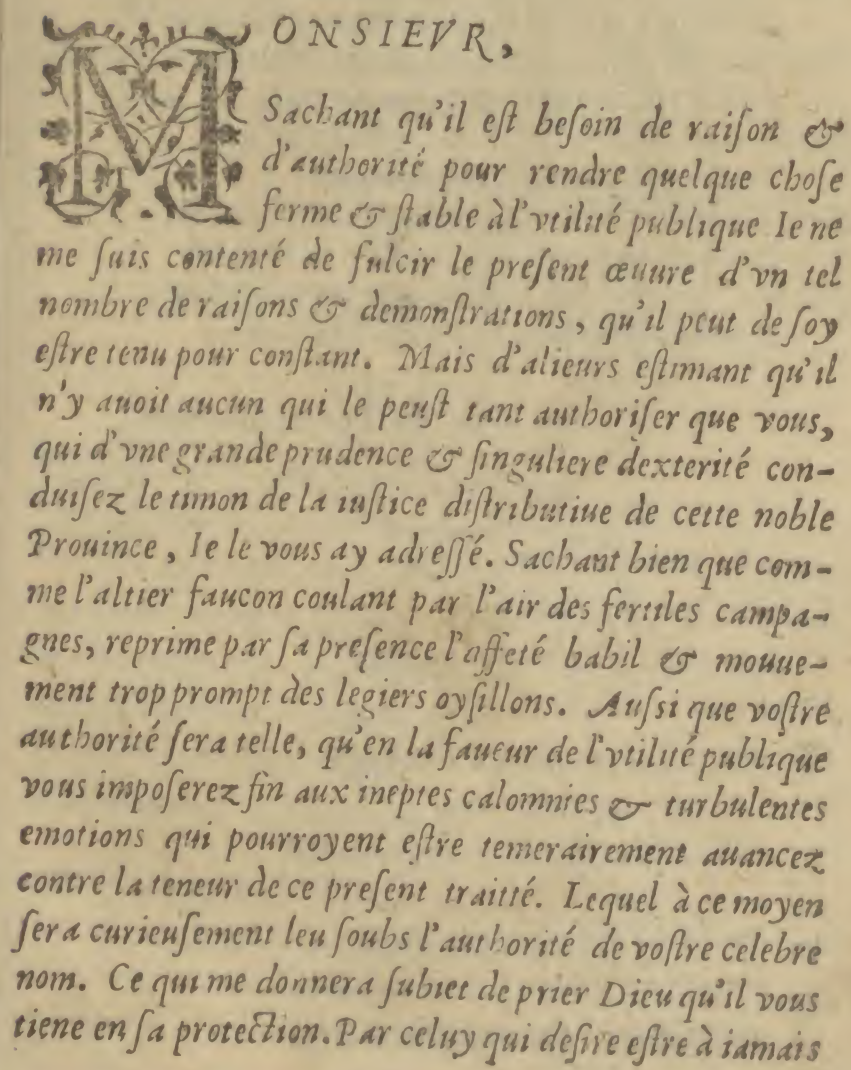 MONSIEVR,
Sachant qu'il eſt beſoin de raiſon &
d'authorité pour rendre quelque choſe
ferme & ſtable à l'vtilité publique Ie ne
me ſuis contenté de fulcir le preſent œuure d'vn tel
nombre de raiſons & demonſtrations, qu'il peut de ſoy
eſtre tenu pour conſtant. Mais d'alieurs eſtimant qu'il
n'y auoit aucun qui le peuſt tant authoriſer que vous,
qui d'vne grande prudence & ſinguliere dexterité con-
duiſez le timon de la iuſtice diſtributiue de cette noble
Prouince, Ie le vous ay adreſſé. Sachant bien que com-
me l'altier faucon coulant par l'air des fertiles campa-
gnes, reprime par ſa preſence l'affeté babil & mouue-
ment trop prompt des legiers oyſillons. Auſsi que voſtre
authorité ſera telle, qu'en la faueur de l'vtilité publique
vous impoſerez fin aux ineptes calomnies & turbulentes
emotions qui pourroyent eſtre temerairement auancez
contre la teneur de ce preſent traitté. Lequel à ce moyen
ſera curieuſement leu ſoubs l'authorité de voſtre celebre
nom. Ce qui me donnera ſubiet de prier Dieu qu'il vous
tiene en ſa protection. Par celuy qui deſire eſtre à iamais